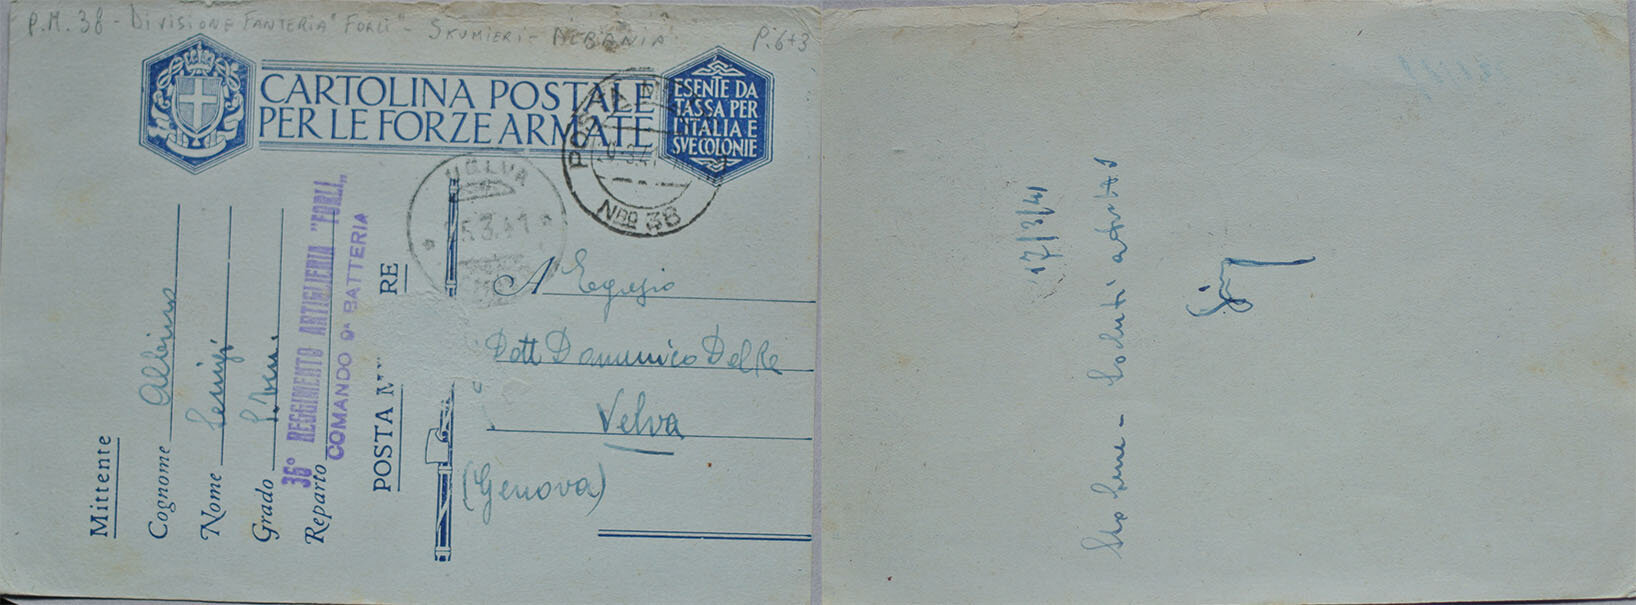 P.M. 38 - DIVISIONE FANTERIA "FORLÌ" - SKUMIERI - ALBANIA P.6+3
CARTOLINA POSTALE
PER LE FORZE ARMATE
ESENTE DA
TASSA PER
L'ITALIA E
SVE COLONIE
POSTA
Nro 38
VELVA
5.3.41
Mittente
Cognome
Nome
Grado
Reparto
36° REGGIMENTO ARTIGLIERIA "FORLI"
COMANDO 9a BATTERIA
POSTA M RE
A Egregio
Dott Domenico Del Re
Velva
(Genova)
17/3/41
Sto bene - Saluti